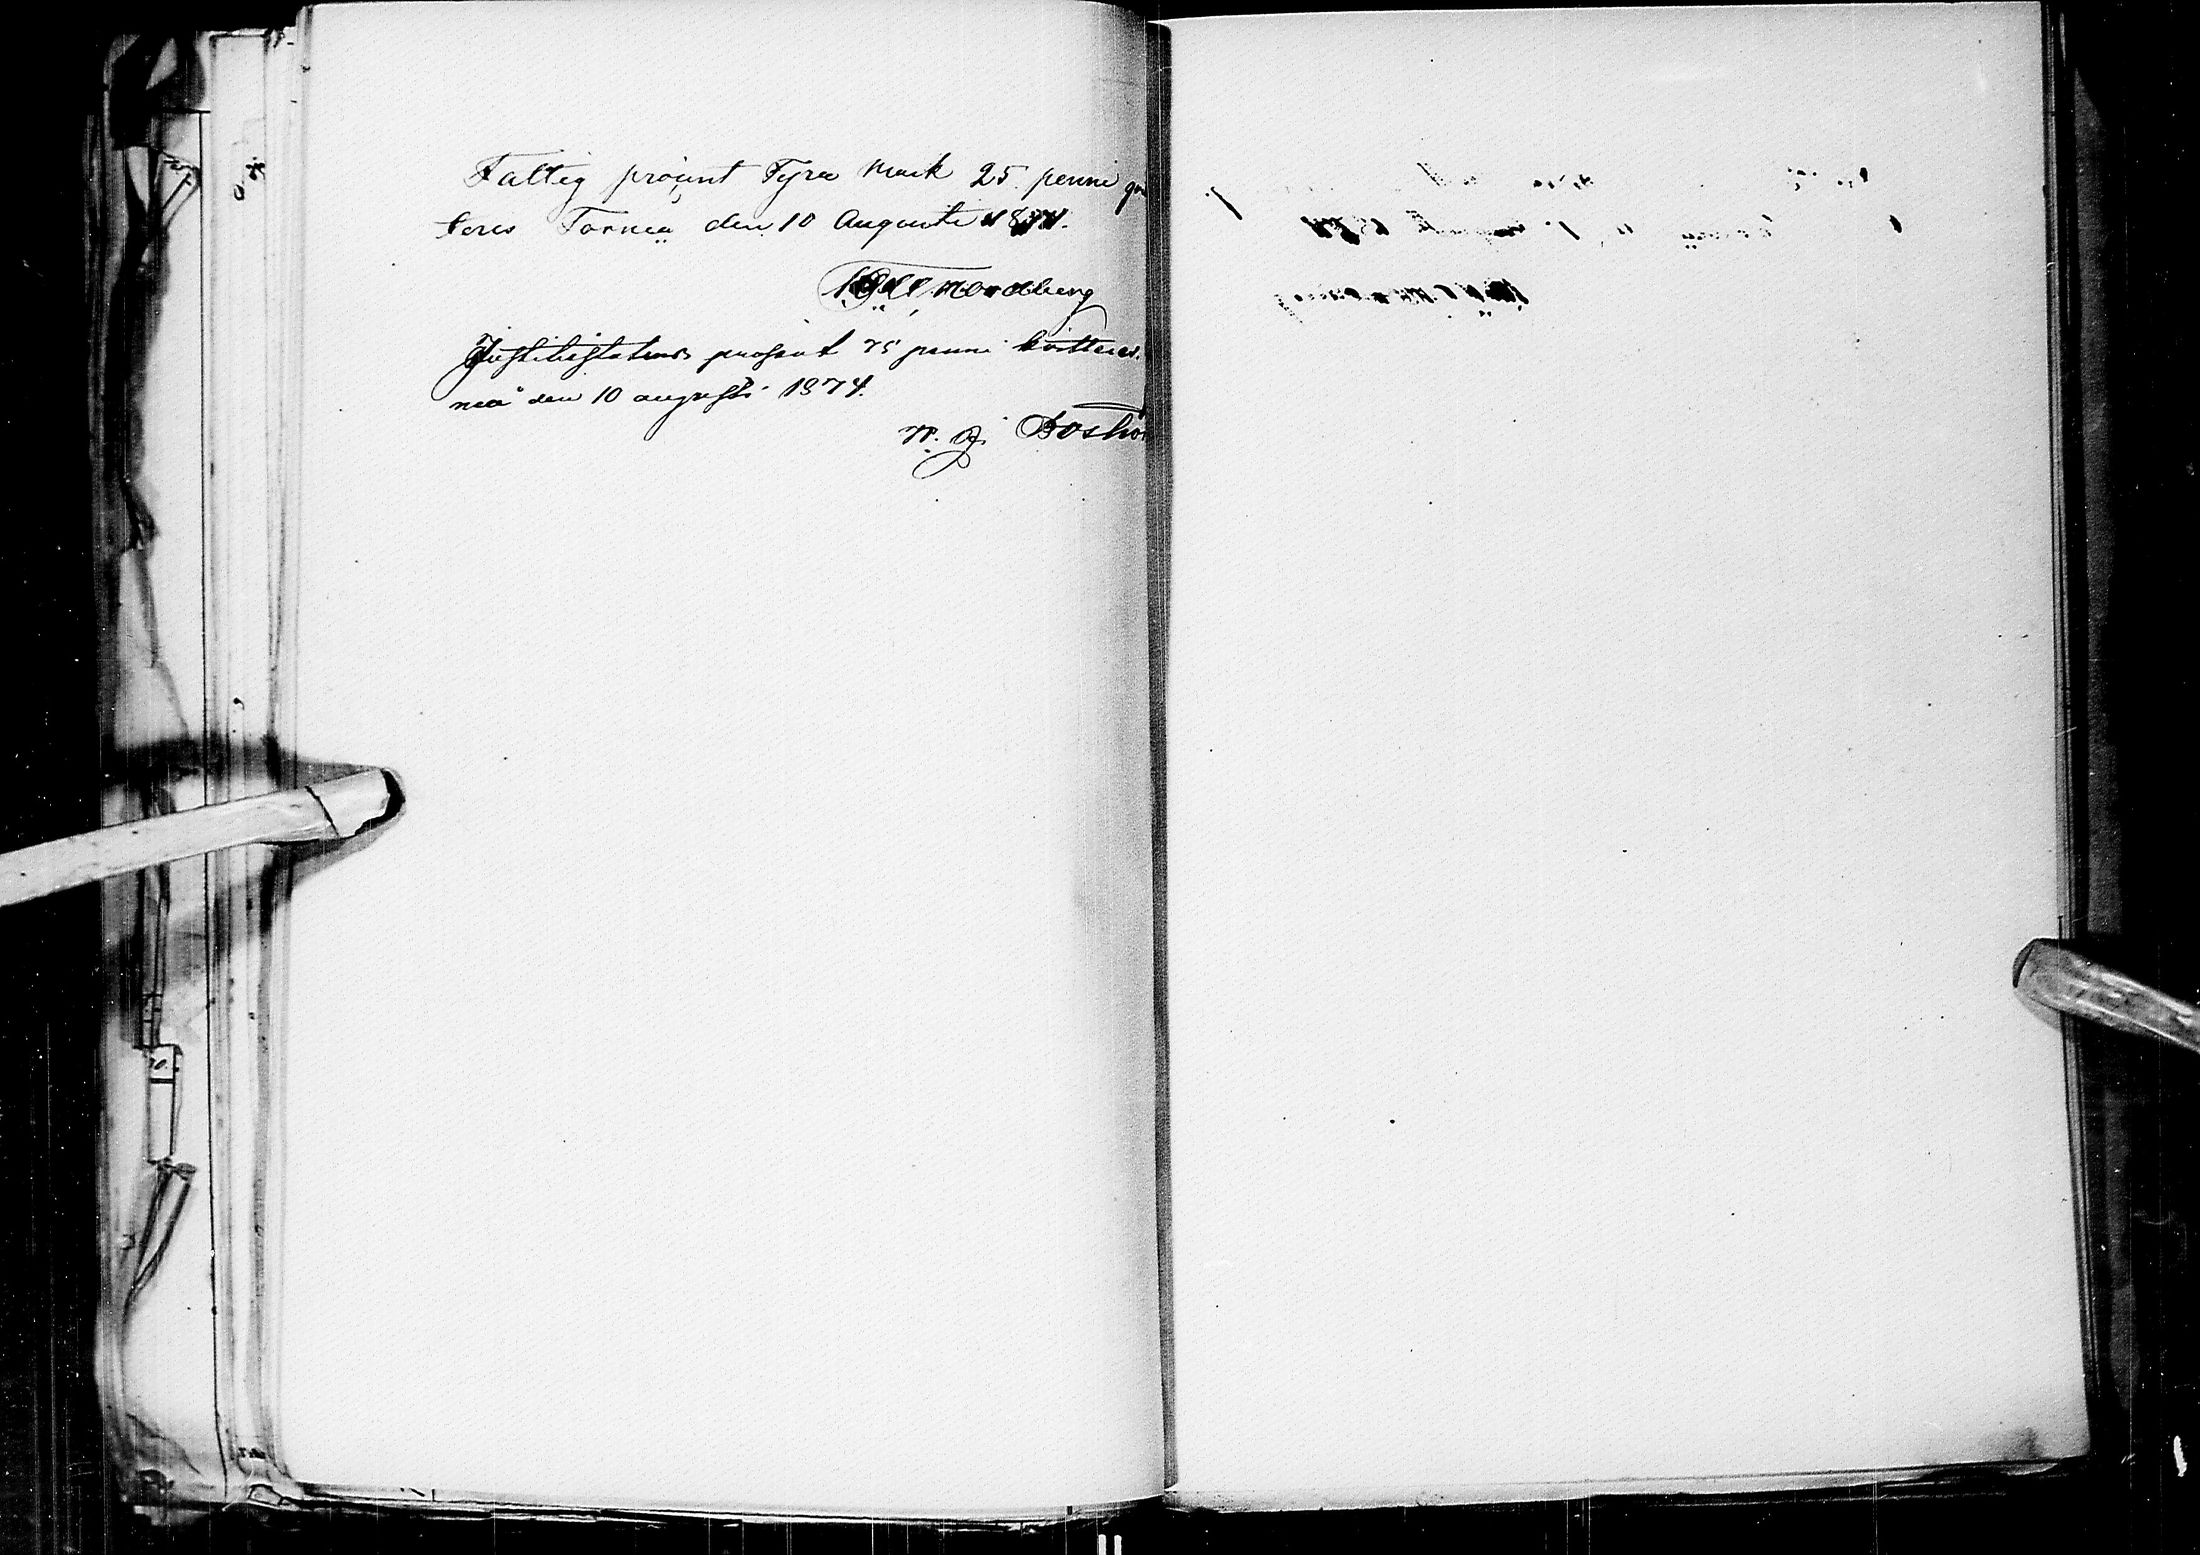 Fattig procent Fyra Mark 25 penni qvi
teras Torneå den 10 Augusti 1874.
Nordberg
Justitiestatens prosent 75 penni kvitteras.
neå den 10 augusti 1874.
Boströ